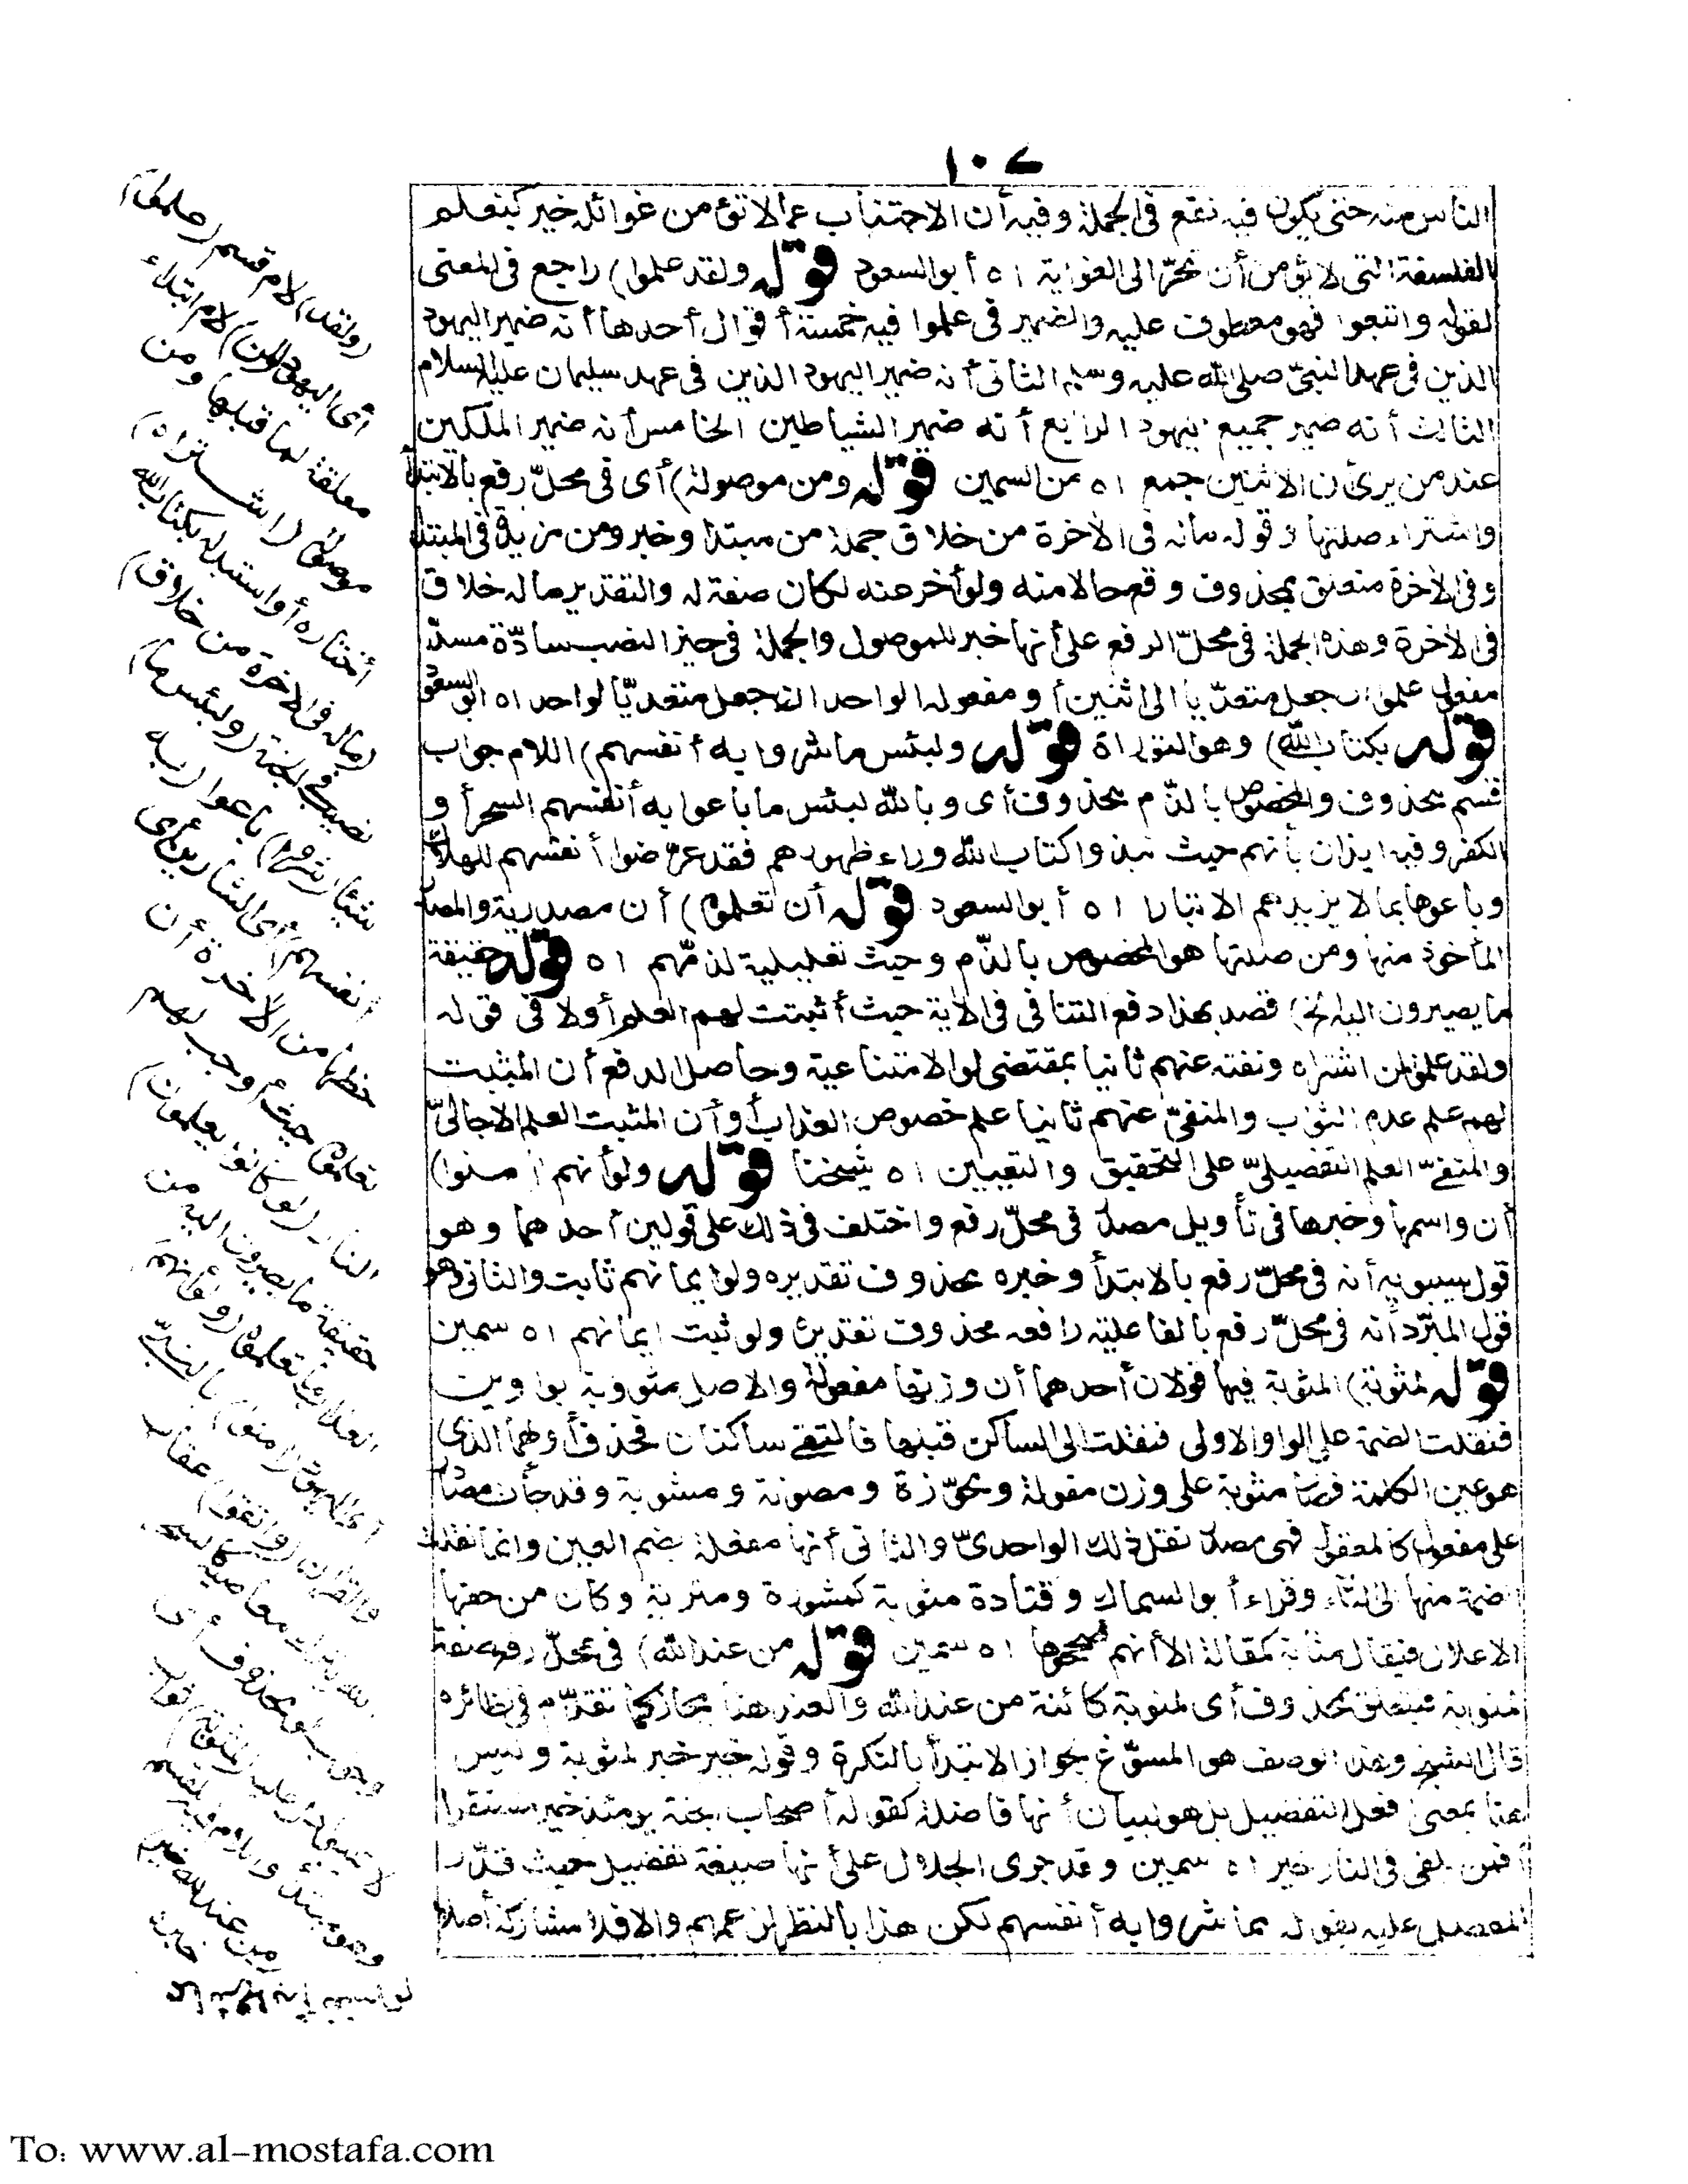 ١٠٢
الناس منه حتى يكون فيه نفع في الجملة وفيه أن الاجتناب عمالا تؤمن غوائله خير كتعلم
الفلسفة التى لا يؤمن أن تجرّ الى الغواية اه أبوالسعود قوله ولقد علموا) راجع في المعنى
لقوله واتبعوا فهو معطوف عليه والضمير فى علموا فيه خمسة أقوال أحدها أنه ضمير اليهود
الذين فى عهد النبىّ صلى الله عليه وسلم الثانى أنه ضمير اليهود الذين فى عهد سليمان عليه السلام
الثالث أنه ضمير جميع اليهود الرابع أنه ضمير الشياطين الخامس أنه ضمير الملكين
عند من يرى أن الاثنين جمع اه من السمين قوله ومن موصولة) أى فى محلّ رفع بالابتدا
واشتراه صلتها وقوله ماله فى الآخرة من خلاق جملة من مبتدا وخبر ومن مزيدة فى المبتدا
وفى الآخرة متعلق بمحذوف وقع حالا منه ولو أخر عنه لكان صفة له والتقدير ماله خلاق
فى الآخرة وهذه الجملة فى محلّ الرفع على أنها خبر للموصول والجملة فى حيز النصب سادّة مسدّ
مفعولى علموا ان جعل متعدّيا الى اثنين أو مفعوله الواحد ان جعل متعديّا لواحد اه أبوالسعود
قوله بكتاب الله) وهو التوراة قوله ولبئس ما شروا به أنفسهم) اللام جواب
قسم محذوف والمخصوص بالذّم محذوف أى وبالله لبئس ما باعوا به أنفسهم السحر أو
الكفر وفيه ايذان بأنهم حيث نبذوا كتاب الله وراء ظهورهم فقد عرّضوا أنفسهم للهلاك
وباعوها بما لا يزيدهم الا تبارا اه أبوالسعود قوله أن تعلموه) أن مصدرية والمصدر
المأخوذ منها ومن صلتها هو المخصوص بالذّم وحيث تعليلية لذمّهم اه قوله حقيقة
ما يصيرون اليه الخ) قصد بهذا دفع التنافى فى الآية حيث أثبتت لهم العلم أولا فى قوله
ولقد علموا لمن اشتراه ونفته عنهم ثانيا بمقتضى لو الامتناعية وحاصل الدفع أن المثبت
لهم علم عدم الثواب والمنفىّ عنهم ثانيا علم خصوص العذاب أو أن المثبت العلم الاجالىّ
والمنفىّ العلم التفصيلىّ على التحقيق والتعيين اه شيخنا قوله ولو أنهم آمنوا)
أن واسمها وخبرها فى تأويل مصدر فى محلّ رفع واختلف فى ذلك على قولين أحدهما وهو
قول سيبويه أنه فى محلّ رفع بالابتدأ وخبره محذوف تقديره ولو ايمانهم ثابت والثانى وهو
قول المبرّد أنه فى محلّ رفع بالفاعلية رافعه محذوف تقديره ولو ثبت ايمانهم اه سمين
قوله لمثوبة) المثوبة فيها قولان أحدهما أن وزنها مفعولة والاصل مثووبة بواوين
فنقلت الضمة على الواو الاولى فنقلت الى الساكن قبلها فالتقى ساكنان فحذف أولهما الذى
هو عين الكلمة فصار مثوبة على وزن مفولة ومحوّزة ومصونة ومشوبة وقد جأت مصادر
على مفعول كالمعقول فهى مصدر نقل ذلك الواحدىّ والثانى أنها مفعلة بضم العين وانما نقلت
الضمة منها الى الثاء وقراء أبوالسماك وقتادة مثوبة كمشورة ومتربة وكان من حقها
الاعلال فيقال مثابة كمقالة الا أنهم صححوها اه سمين قوله من عند الله) فى محلّ رفع صفة
لمثوبة فيتعلق بمحذوف أى لمثوبة كائنة من عند الله والعندية هنا مجاز كما تقدّم فى نظائره
قال الشيخ وهذا الوصف هو المسوّغ لجواز الابتدأ بالنكرة وقوله خير خبر لمثوبة وليس
هنا بمعنى أفعل التفضيل بل هو لبيان أنها فاضلة كقوله أصحاب الجنة يومئذ خير مستقرا
أفمن يلقى فى النار خير اه سمين وقد جرى الجلال على أنها صيغة تفضيل حيث قدّر
المفصل عليه بقوله مما شروا به أنفسهم لكن هذا بالنظر لزعمهم والا فلا مشاركة أصلا
(ولقد) لام قسم (علموا)
أى اليهود (لمن) لام ابتداء
معلقة لما قبلها ومن
موصولة (اشتراه)
أختاره أو استبدله بكتاب الله
(ماله فى الآخرة من خلاق)
نصيب فى الجنة (ولبئس ما)
شيئا (شروا) باعوا (به
أنفسهم) أى الشارين أى
حظها من الآخرة أن
تعلموه حيث أوجب لهم
النار (لو كانوا يعلمون)
حقيقة ما يصيرون اليه من
العذاب ما تعلموه (ولو أنهم)
أى اليهود (آمنوا) بالنبىّ
والقرآن (واتقوا) عقاب
الله بترك معاصيه كالسحر
وجواب لو محذوف أى
لأثيبوا دل عليه (لمثوبة) ثواب
وهو مبتدأ واللام فيه للقسم
(من عند الله خير)
خبره
مما شروا به أنفسهم
To: www.al-mostafa.com